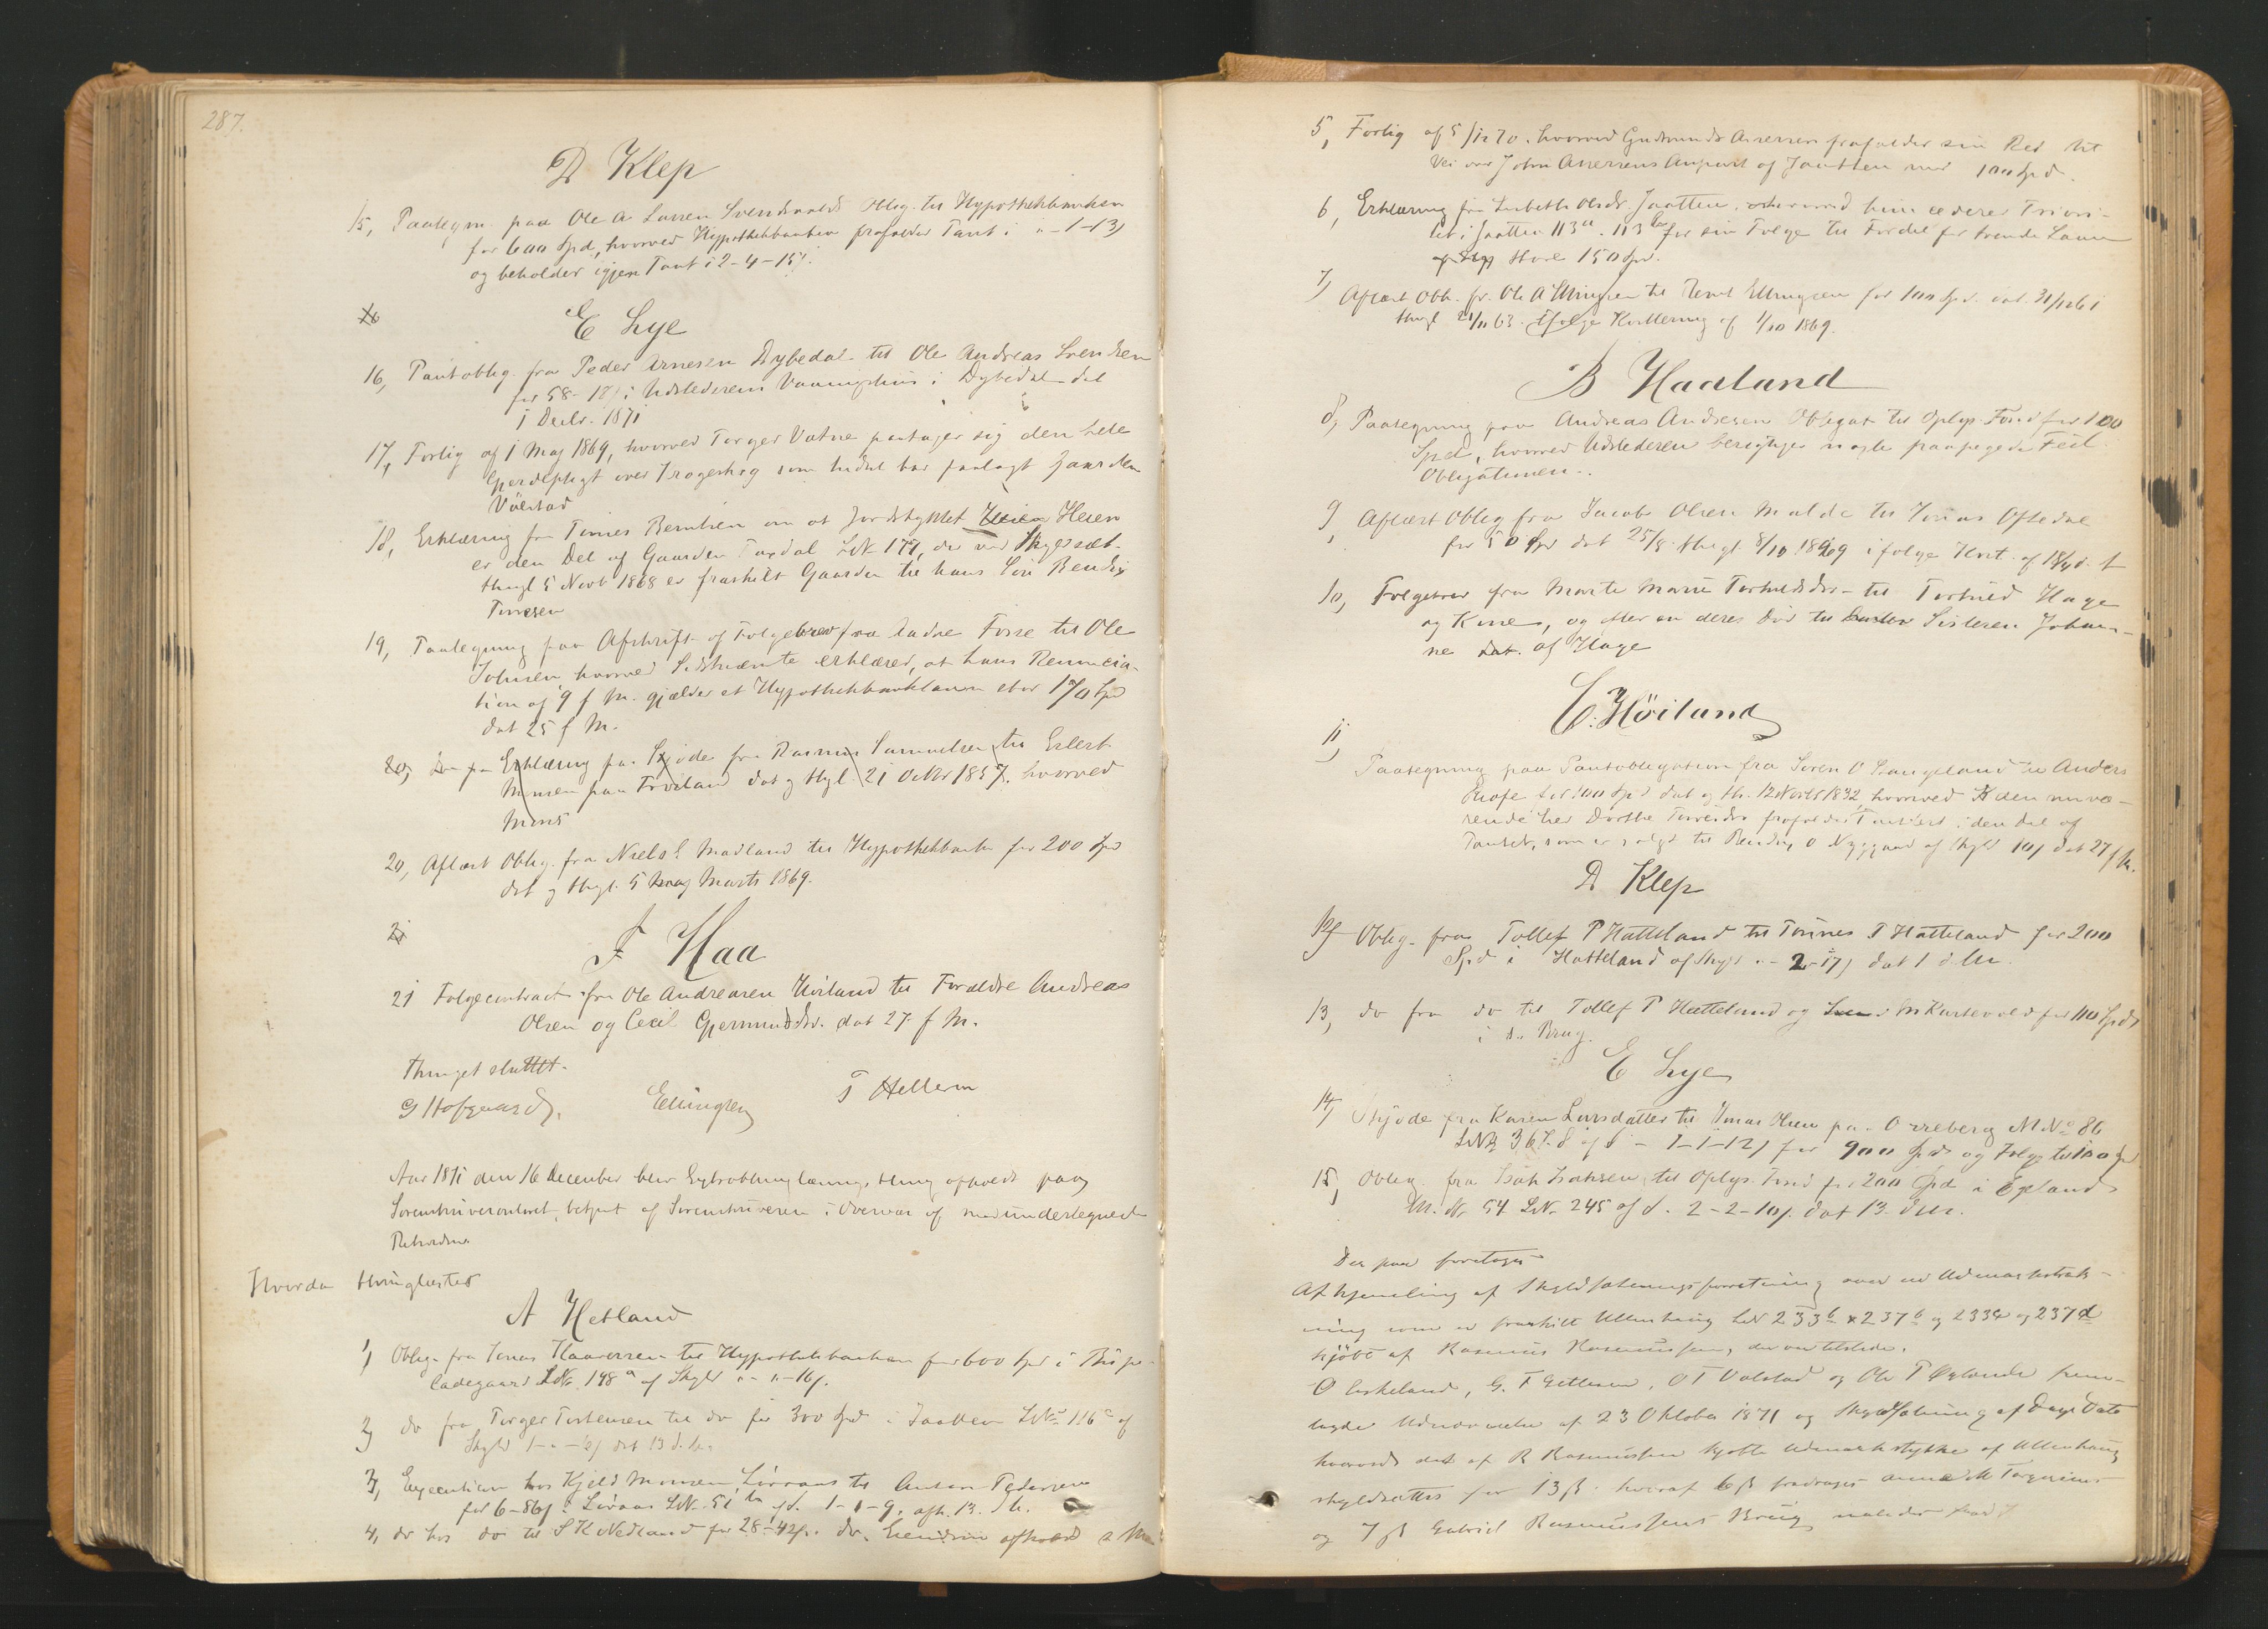 287.
D Klep
15, Paategn. paa Ole A Larsen Svendsvolds Oblig. til Hypothekbanken
for 600 Spd, hvorved Hypothekbanken frafalder Pant i " - 1 - 13)
og beholder igjen Pant i 2 - 4 - 15).
E Lye
16, Pantoblig. fra Peder Arnesen Dybedal til Ole Andreas Svendsen
for 58 - 18) i Udstederens Vaaningshus i Dybedal dat
1 Decbr. 1871
17, Forlig af 1 Maj 1869, hvorved Torger Vatne paatager sig den hele
Gjerdepligt over Trogershog som hidtil har paalagt Gaarden
18, Erklæring fra Tønnes Berntsen om at Jordstykket Heien
er den Del af Gaarden LN 177, der ved Skjøde
thingl 5 Novb 1868 er fraskilt Gaarden til hans Søn
Tønnesen
19, Paategning paa Afskrift af Folgebrev fra Fosse til Ole
Johnsen hvorved Sidstnævnte erklærer, at hans Renuncia-
tion af 9 f M. gjælder et Hypothekbanklaan stor 170 Spd
dat 25 f M.
20, Erklæring paa Skjøde fra Rasmus Samuelsen til Eilert
Monsen paa Froiland dat og thgl. 21 Octbr 1857. hvorved
Mons
20, Aflæst Oblig. fra Niels E Madland til Hypothekbanken for 200 Spd
dat og thgl. 5 Marts 1869.
21
F Haa
21 Folgecontract fra Ole Andreasen Høiland til Forældre Andreas
Olsen og Cecil Gjermundsdtr. dat 27 f M.
Thinget sluttet.
G Hofgaard. Ellingsen T Hellesen
Aar 1871 den 16 December blev Extrathinglæsnings thing afholdt paa
Sorenskrivercontoret, betjent af Sorenskriveren i Overvær af medundertegnede
Retsvidner
Hvorda thinglæstes
A Hetland
1) Oblig. fra Jonas Kaaresen til Hypothekbanken for 600 Spd i Bispe-
ladegaard LNr. 148 a af Skyld " - " - 16).
2) do fra Torger Torstensen til do for 300 Spd i Jaatten LNo 116 c af
Skyld 1 - " - dat 13 d. M.
3, Execution hos Kjeld Monsen Livaas til Anton Pedersen
for 6 - 86) i Livaas LNr. 51 af S. 1 - 1 - 9, afh. 13. d M.
4, do hos do til S K Nedland for 28 - 42). do. afholdt
5, Forlig af 5/12 70. hvorved Gudmund Assersen frafalder sin Ret til
Vei over John Assersens Anpart af Jaatten mod 100 Spd.
6, Erklæring fra Lisbeth Olsdtr Jaatten, hvorved hun cederer Priori-
tet i Jaatten 113 a. 113 b for sin Folge til Fordel for trende Laan
stort 150 Spd.
7) Aflæst Obl. fr. Ole A Ellingsen til Berent Ellingsen for 100 Spd. dat. 31/12 61
thingl 21/11 63. ifølge Kvittering af 1/10 1869.
B Haaland
8, Paategning paa Andreas Andresens Obligat. til Oplys. Fond for 100
Spd, hvorved Udstederen berigtiger nogle paapegede Feil
Obligationen.
9, Aflæst Oblig fra Jacob Olsen Malde til Jonas Oftedal
for 50 Spd dat 25/8. thgl. 8/10 1869 ifølge Kvit. af
10, Folgebrev fra Marte Marie Torkildsdtr. til Torkild Hage
og Kone, og efter deres Død til Søsteren Johan-
ne dat. af Hage
C. Høiland
11) Paategning paa Pantobligation fra Søren O Stangeland til Anders
Rosse for 100 Spd dat og th. 12 Novbr 1832, hvorved den nuvæ-
rende Ihdr Dorthe frafalder Panteret i den del af
Pantet, som er solgt til O Nygaard af Skyld 10) dat 27 f M.
D Klep
12) Oblig. fra Tollef P Hatteland til Tønnes T Hatteland for 200
Spd i Hatteland af Skyld " - 2 - 17) dat 1 d M.
13, do fra do til Tollef P Hatteland og M Kartevold for 110 Spd
i s. Brug.
E Lye
14, Skjøde fra Karen Larsdatter til Jonas Olsen paa Orreberg M No 86
LNr 367 af S. - 1 - 1 - 12) for 900 Spd og Folge til 100 Spd
15, Oblig. fra Isak Isaksen til Oplys. Fond for 200 Spd i Egeland
M. Nr 54 LNr. 245 af S. 2 - 2 - 10). dat 13 d M.
Der paa foretoges
Afhjemling af Skyldsætningsforretning over en Udmarksstræk-
ning som er fraskilt Ullenhaug LN 233 b & 237 b og 233 c og 237 d
kjøbt af Rasmus Rasmussen, der var tilstede.
O Eskeland, G. T Gettesen, O T Valstad og Ole T frem-
lagde Udnævnelse af 23 Oktober 1871 og Skyldsætning af Dags Dato
hvorved det af R Rasmussen kjøbte Udmarksstykke af Ullenhaug
skyldsattes for 13 ß. hvoraf 6 ß fradrages Anna M Torgersens
og 7 ß Gabriel Rasmussens Brug